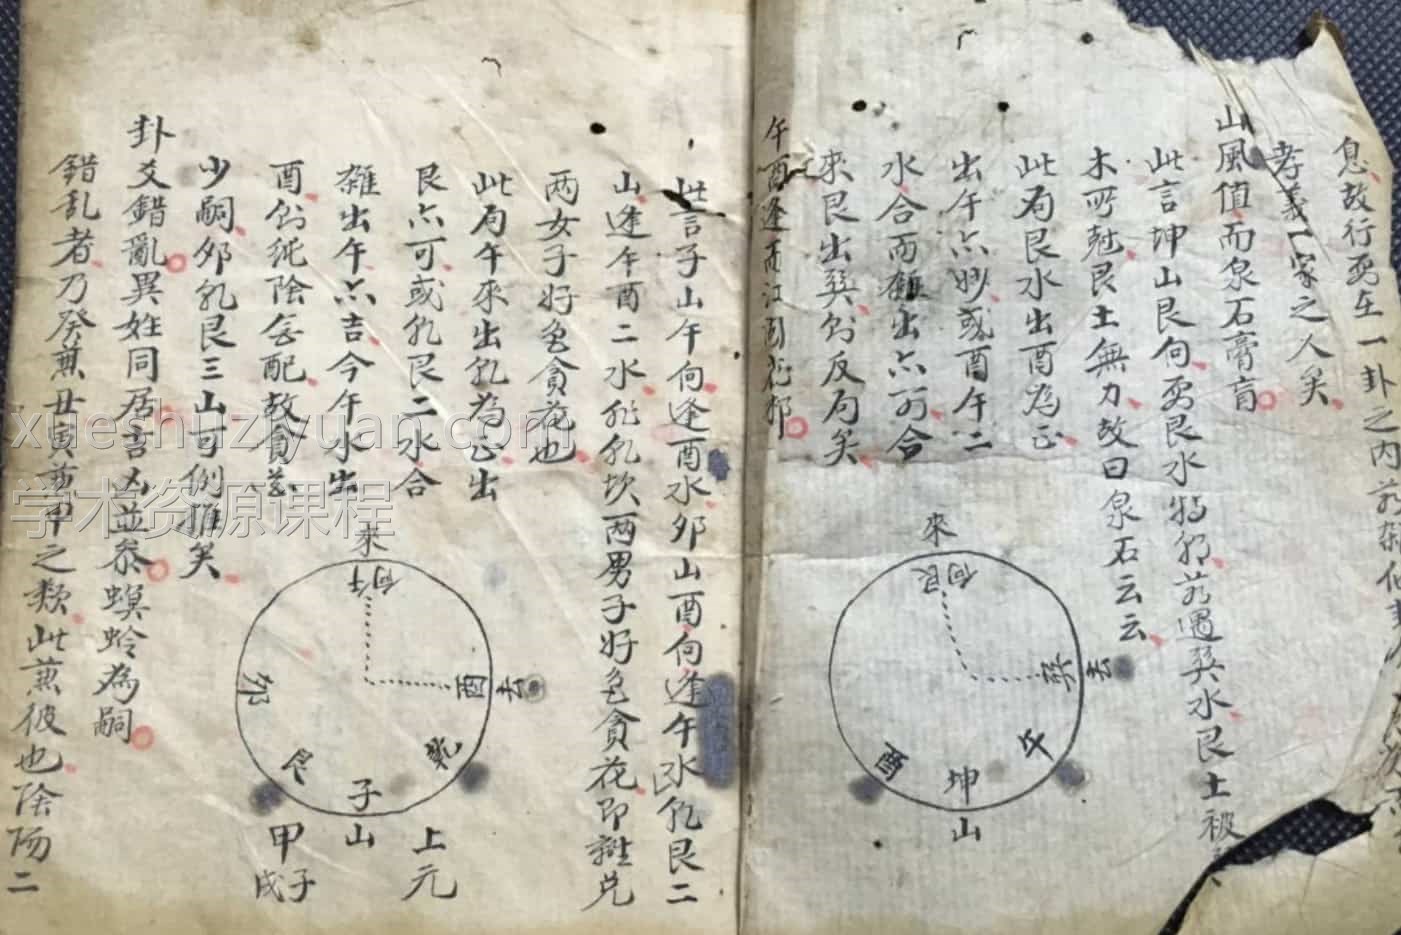 息故行要在一卦之内若雜他卦
孝義一家之人矣
山風值而泉石膏肓
此言坤山艮向要艮水特朝若遇巽水艮土被
木所尅艮土無力故曰泉石云云
此局艮水出酉為正
出午亦妙或酉午二
水合而雜出亦可合
來艮出巽則反局矣
午酉逢而江湖花柳
來
向艮
巽去
午
酉
坤
山
此言子山午向逢酉水卯山酉向逢午水乾艮二
山逢午酉二水非乾坎兩男子好色貪花即離兌
兩女子好色貪花也
此局午來出乾為正出
艮亦可或乾艮二水合
雜出午亦吉今午水出
酉則純陰無配故貪花
少嗣卯乾艮三山可例推矣
卦爻錯亂異姓同居吉凶並參螟蛉為嗣
錯乱者乃癸兼丑寅兼甲之類此兼彼也陰陽二
來
向午
酉去
卯
艮
乾
子
山
上元
甲子
戌
xueshuziyuan.com
学术资源课程